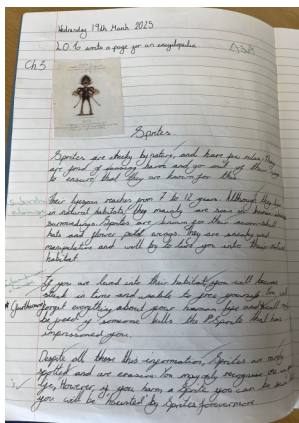 Wednesday 19th March 2025
L.O. To write a page for an encyclopedia
Ch3
Sprites
Sprites are cheeky by nature, and have few rules. They
are fond of causing harm and go out of their way
to ensure that they are known for this.
Their lifespan reaches from 7 to 12 years. Although they live
in natural habitats, they mainly are seen in human
surroundings. Sprites are known for their acorn shell
hats and flower petal wings. They are sneaky and
manipulative and will try to lure you into their natural
habitat.
If you are lured into their habitat, you will become
stuck in time and unable to free yourself. You will
forget everything about your human life and will only
be freed if someone kills the Sprite that has
imprisoned you.
Despite all this information, Sprites are rarely
spotted and are evasive. You may not recognise one in
life, However, if you harm a Sprite you can be sure
you will be haunted by Sprites forevermore.